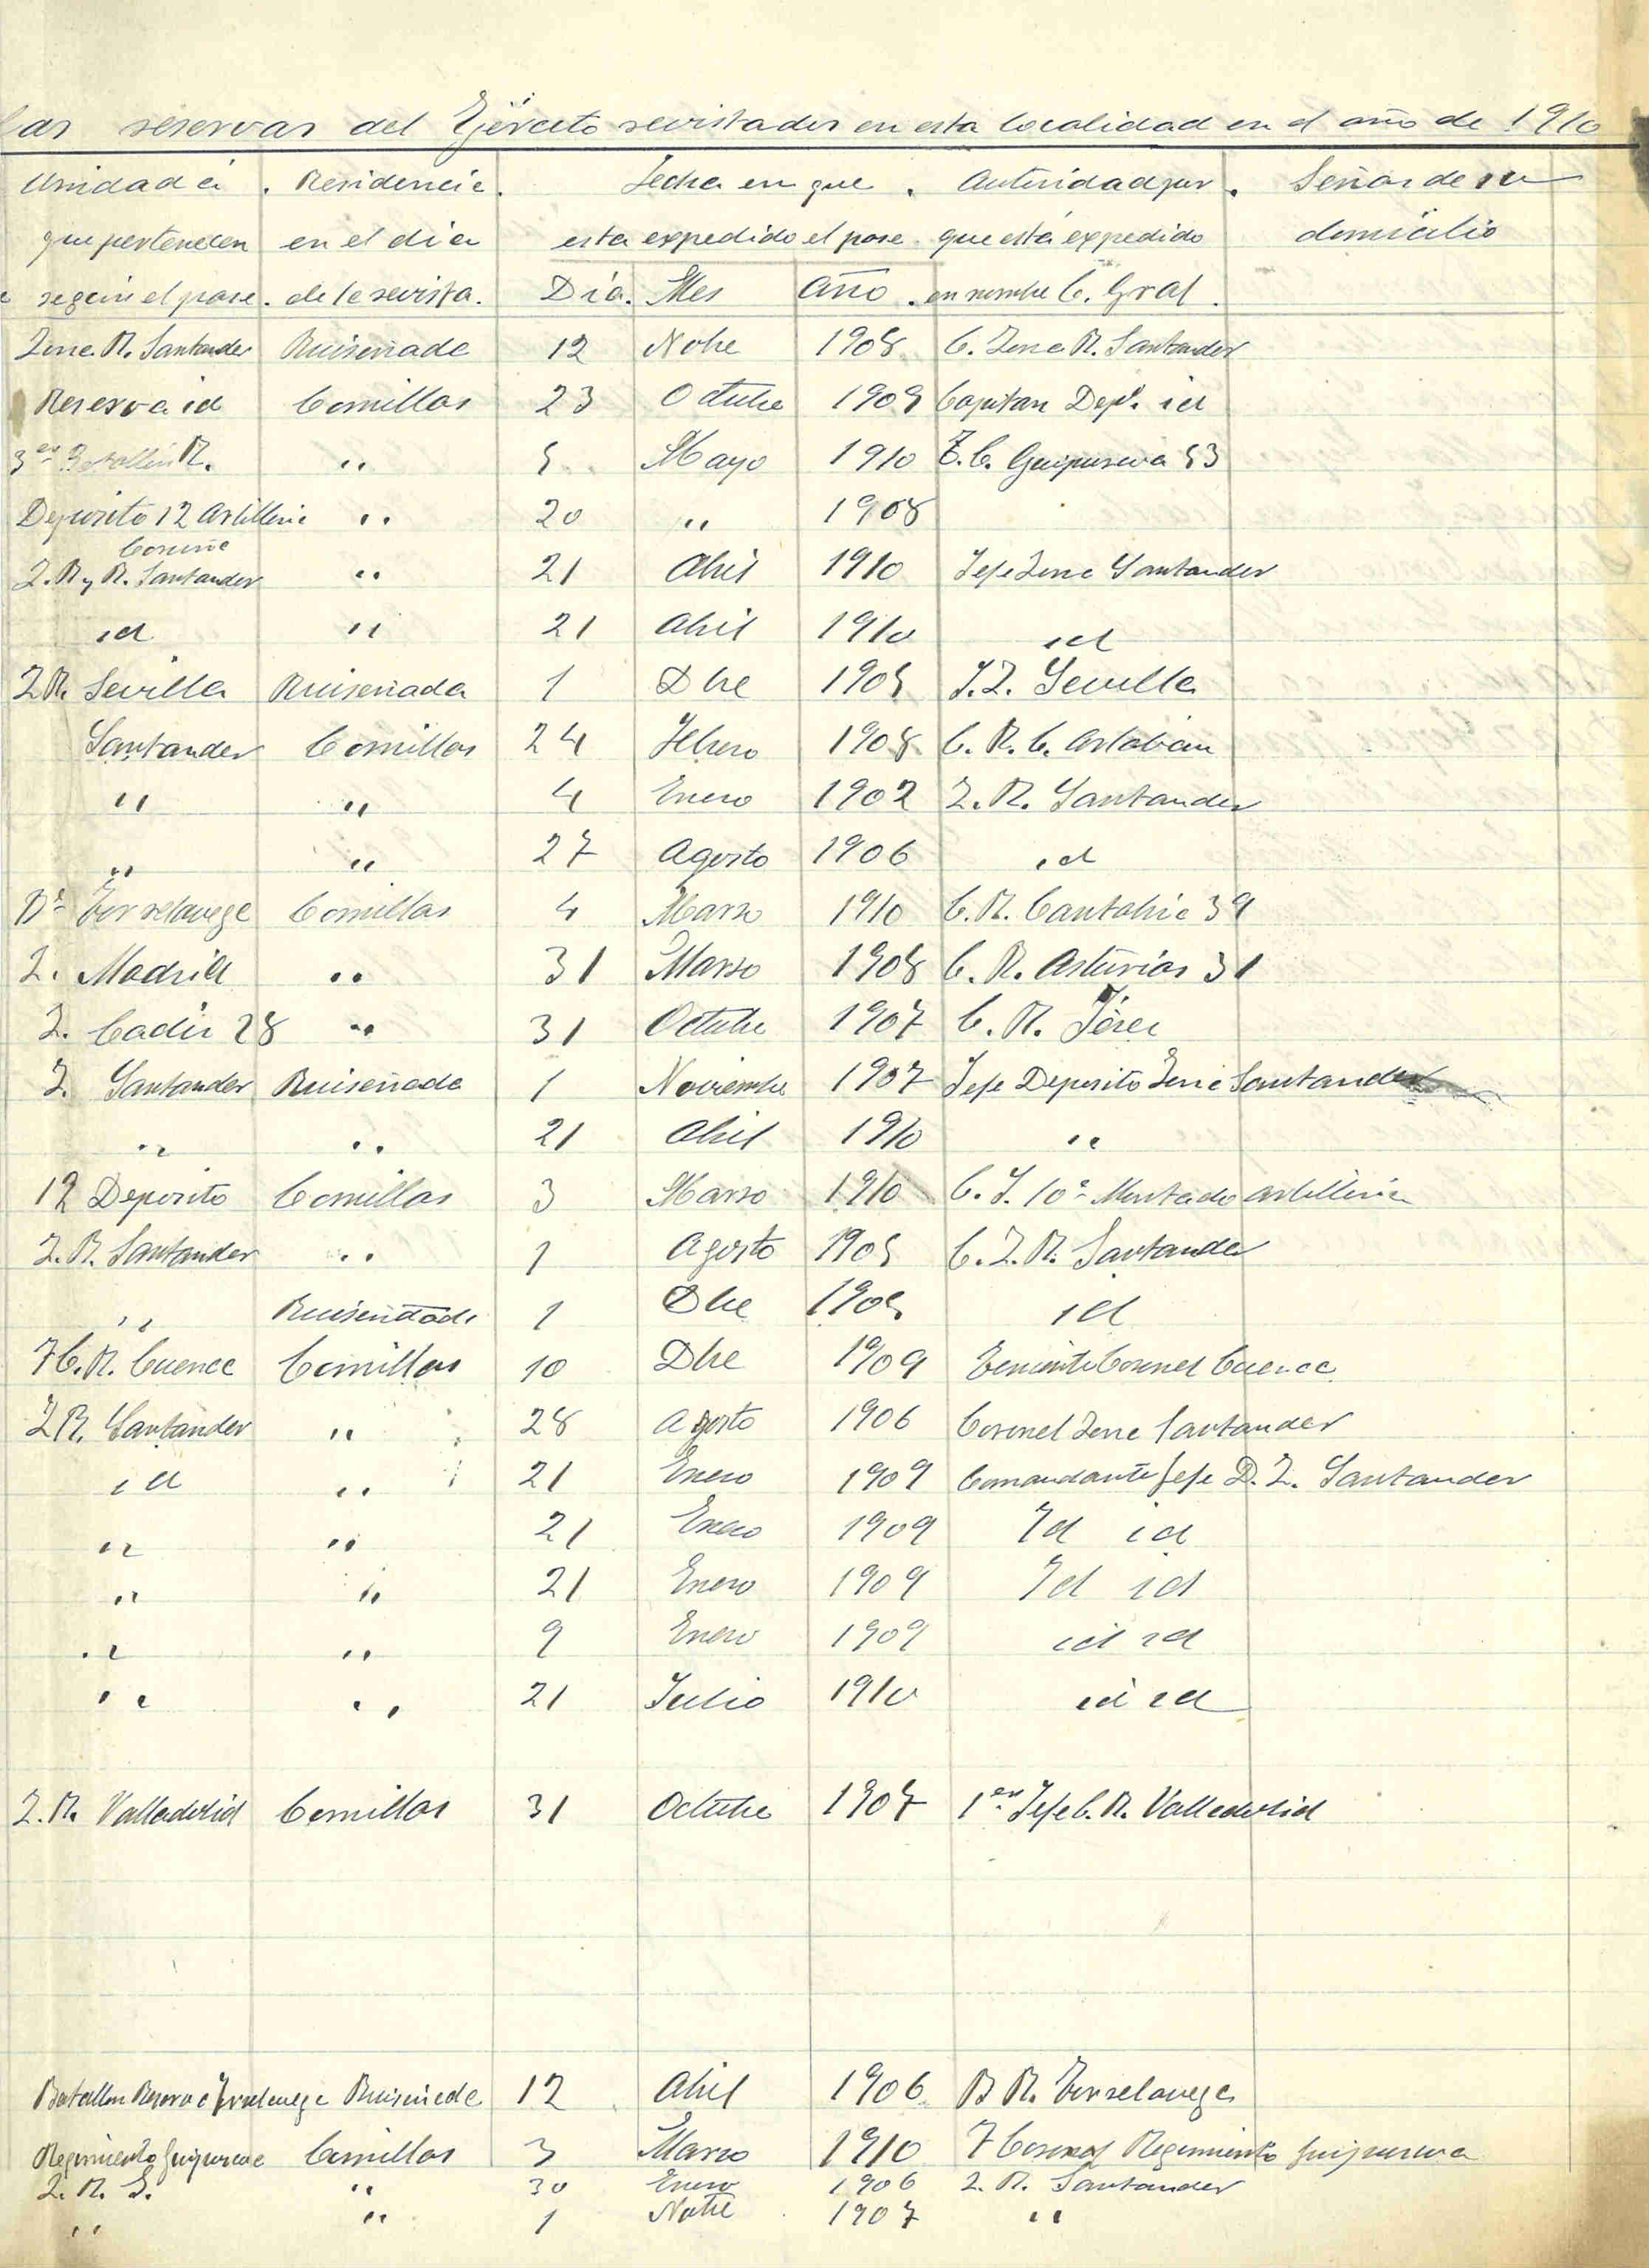 las reservas del Ejército revistados en esta localidad en el año de 1910
Unidad a . Residencia . Fecha en que . Autoridad por . Señas de su
que pertenecen en el dia esta expedido el pase . que está expedido domicilio
según el pase . de la revista . Día . Mes Año . en nombre C. Gral .
Zona R. Santander Ruiseñada 12 Nobe 1908 C. Zona R. Santander
Reserva id Comillas 23 Octubre 1909 Capitan Dep. id
3er Batallón R. " 5 Mayo 1910 T. C. Guipuscua 53
Deposito 12 Artilleria " 20 " 1908
Coruña
Z. R y R. Santander " 21 Abril 1910 Jefe Zona Santander
id " 21 Abril 1910 id
Z R. Sevilla Ruiseñada 1 Dbe 1905 J. Z. Sevilla
Santander Comillas 24 Febrero 1908 C. R. C. Artaban
" " 4 Enero 1902 Z. R. Santander
" " 27 Agosto 1906 id
Bn Torrelavega Comillas 4 Marzo 1910 C. R. Cantabria 39
Z. Madrid " 31 Marzo 1908 C. R. Asturias 31
Z. Cadiz 28 " 31 Octubre 1907 C. R. Jérez
Z. Santander Ruiseñada 1 Noviembre 1907 Jefe Deposito Zona Santander
" " 21 Abril 1910 "
12 Deposito Comillas 3 Marzo 1910 C. J. 10º Montado artilleria
Z. R. Santander " 1 Agosto 1905 C. Z. R. Santander
" Ruiseñada 1 Dbe 190 id
R. Cuenca Comillas 10 Dbe 1909 Teniente Coronel Cuenca
Z R. Santander " 28 Agosto 1906 Coronel Zona Santander
id " 21 Enero 1909 Comandante Jefe D. Z. Santander
" " 21 Enero 1909 Id id
" " 21 Enero 1909 Id id
" " 9 Enero 1909 id id
" " 21 Julio 1910 id id
Z. R. Valladolid Comillas 31 Octubre 1907 1er Jefe C. R. Valladolid
Batallon Reserva Torrelavega Ruiseñada 12 Abril 1906 B R. Torrelavega
Regimiento Guipuscua Comillas 3 Marzo 1910 T Coronel Regimiento Guipuscua
Z. R. S. " 30 Enero 1906 Z. R. Santander
" " 1 Nobe 1907 "